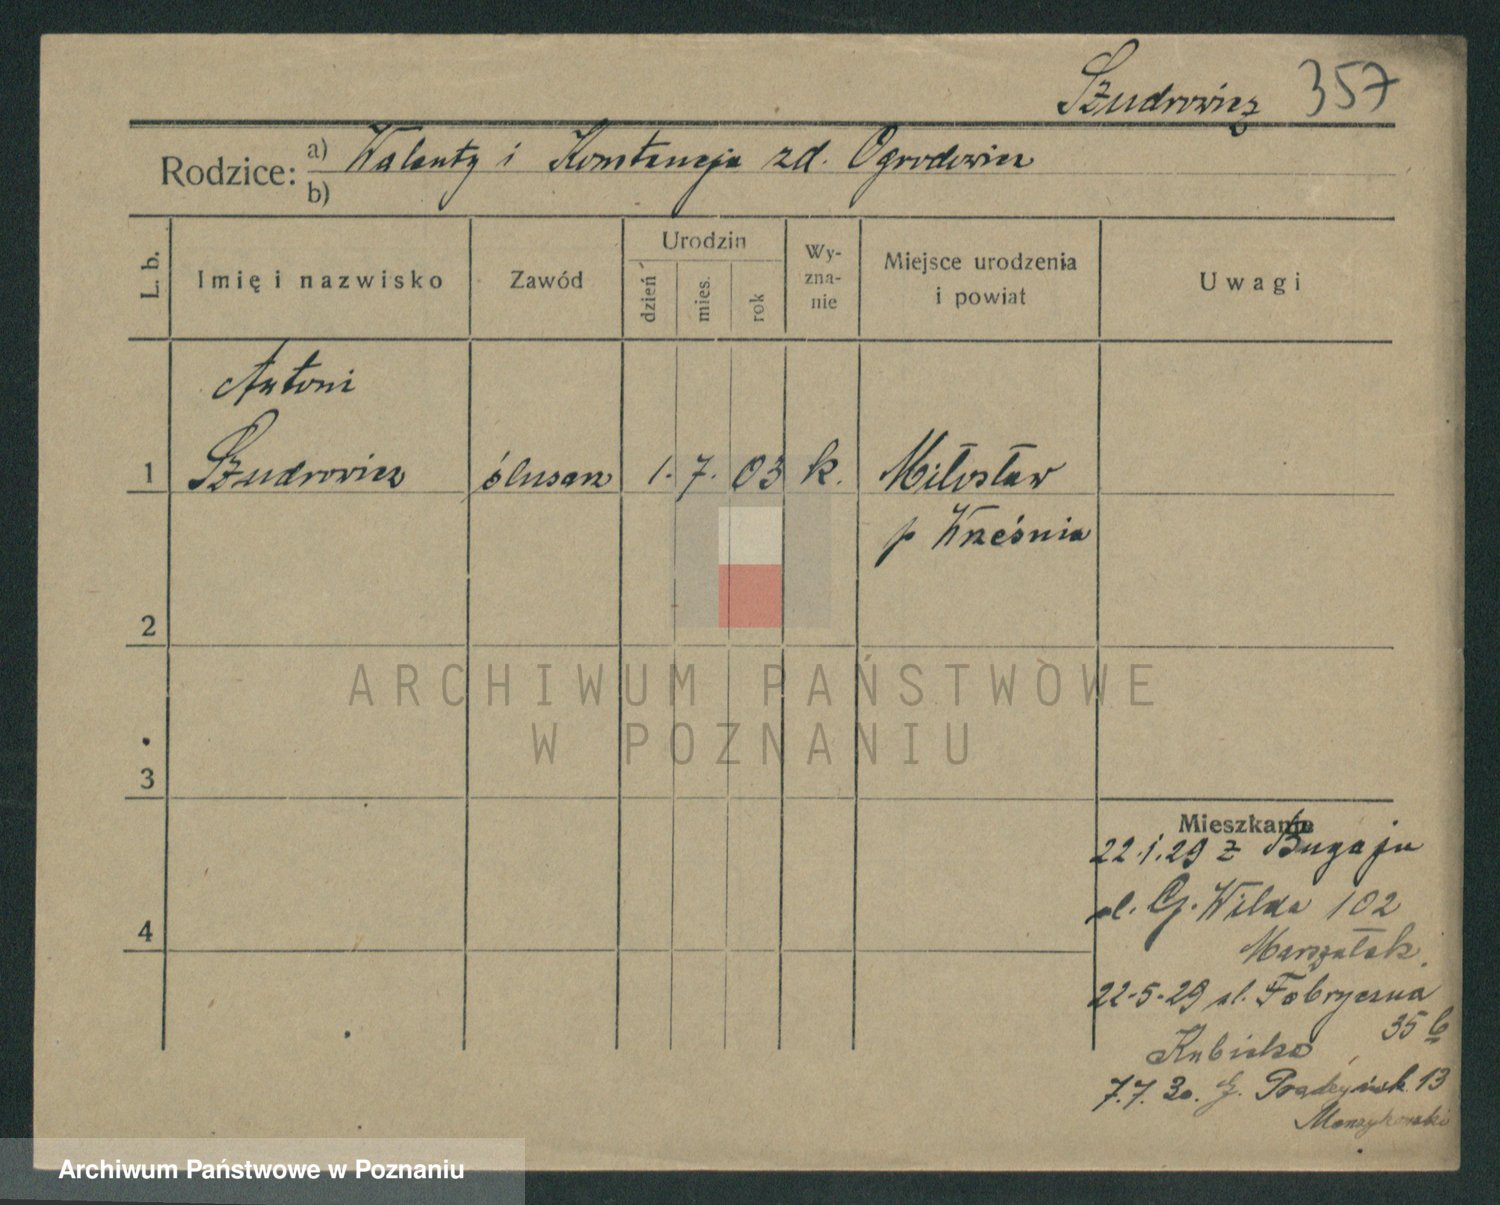 Szudrowicz 357
Rodzice: a) Walenty i Konstancja zd. Ogrodowicz
b)
L. b.
Imię i nazwisko
Zawód
Urodzin
dzień
mies.
rok
Wy-
zna-
nie
Miejsce urodzenia
i powiat
Uwagi
Antoni
1 Szudrowicz ślusarz 1. 7. 03 k. Miłosław
p Września
2
3
4
Mieszkanie
22.1.29 z Bugaju
ul. G. Wilda 102
Marszałek
22-5-29 ul. Fabryczna
35 b
Kubiska
7.7.30. G. Prądzyńsk. 13
ARCHIWUM PAŃSTWOWE
W POZNANIU
Archiwum Państwowe w Poznaniu